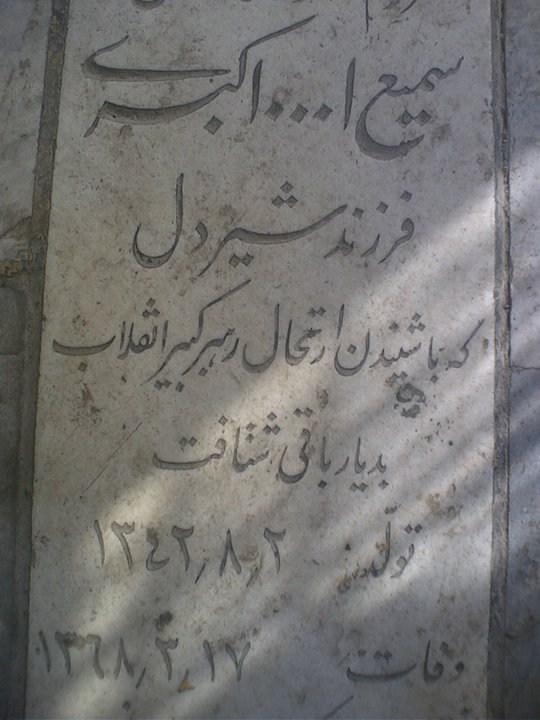 سمیع ا... اکبری
فرزند شیردل
که باشیندن ارتحال رهبر کبیر انقلاب
بدیار باقی شتافت
تولّد ۱۳٤۲٫۸٫۲
وفات ۱۳٦۸٫۳٫۱۷